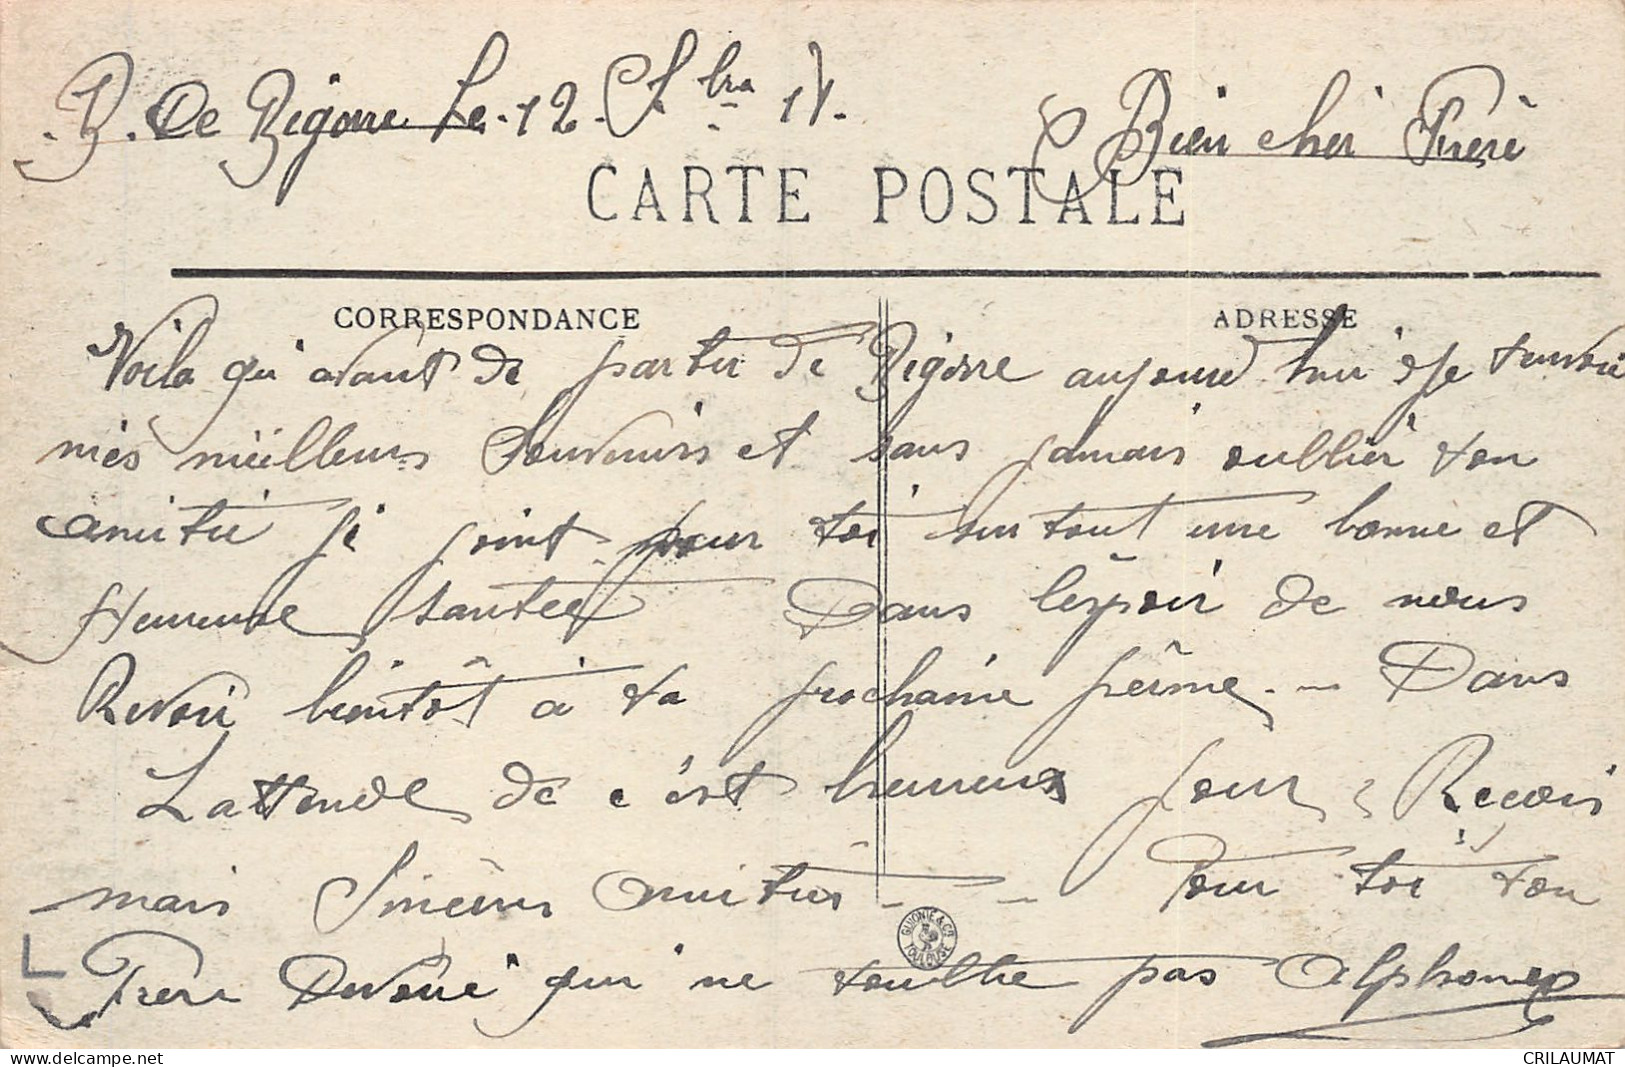 B. De Bigorre Le 12 Sbra 17. Bien cher Frère
CARTE POSTALE
CORRESPONDANCE ADRESSE
Voila qu'avant de partir de Bigorre aujourd hui Je t'envoi
mes meilleurs Souvenirs et sans jamais oublier ton
amitié je joint pour toi surtout une bonne et
Heureuse santée Dans lespoir de nous
Revoir bientôt à ta prochaine perme. - Dans
Lattende de c'est heureux jour, Reçois
mais Sincères amitiés - - Pour toi ton
Frere Dévoué qui ne toublie pas Alphonse
GUIONIE & Cie TOULOUSE
CRILAUMAT